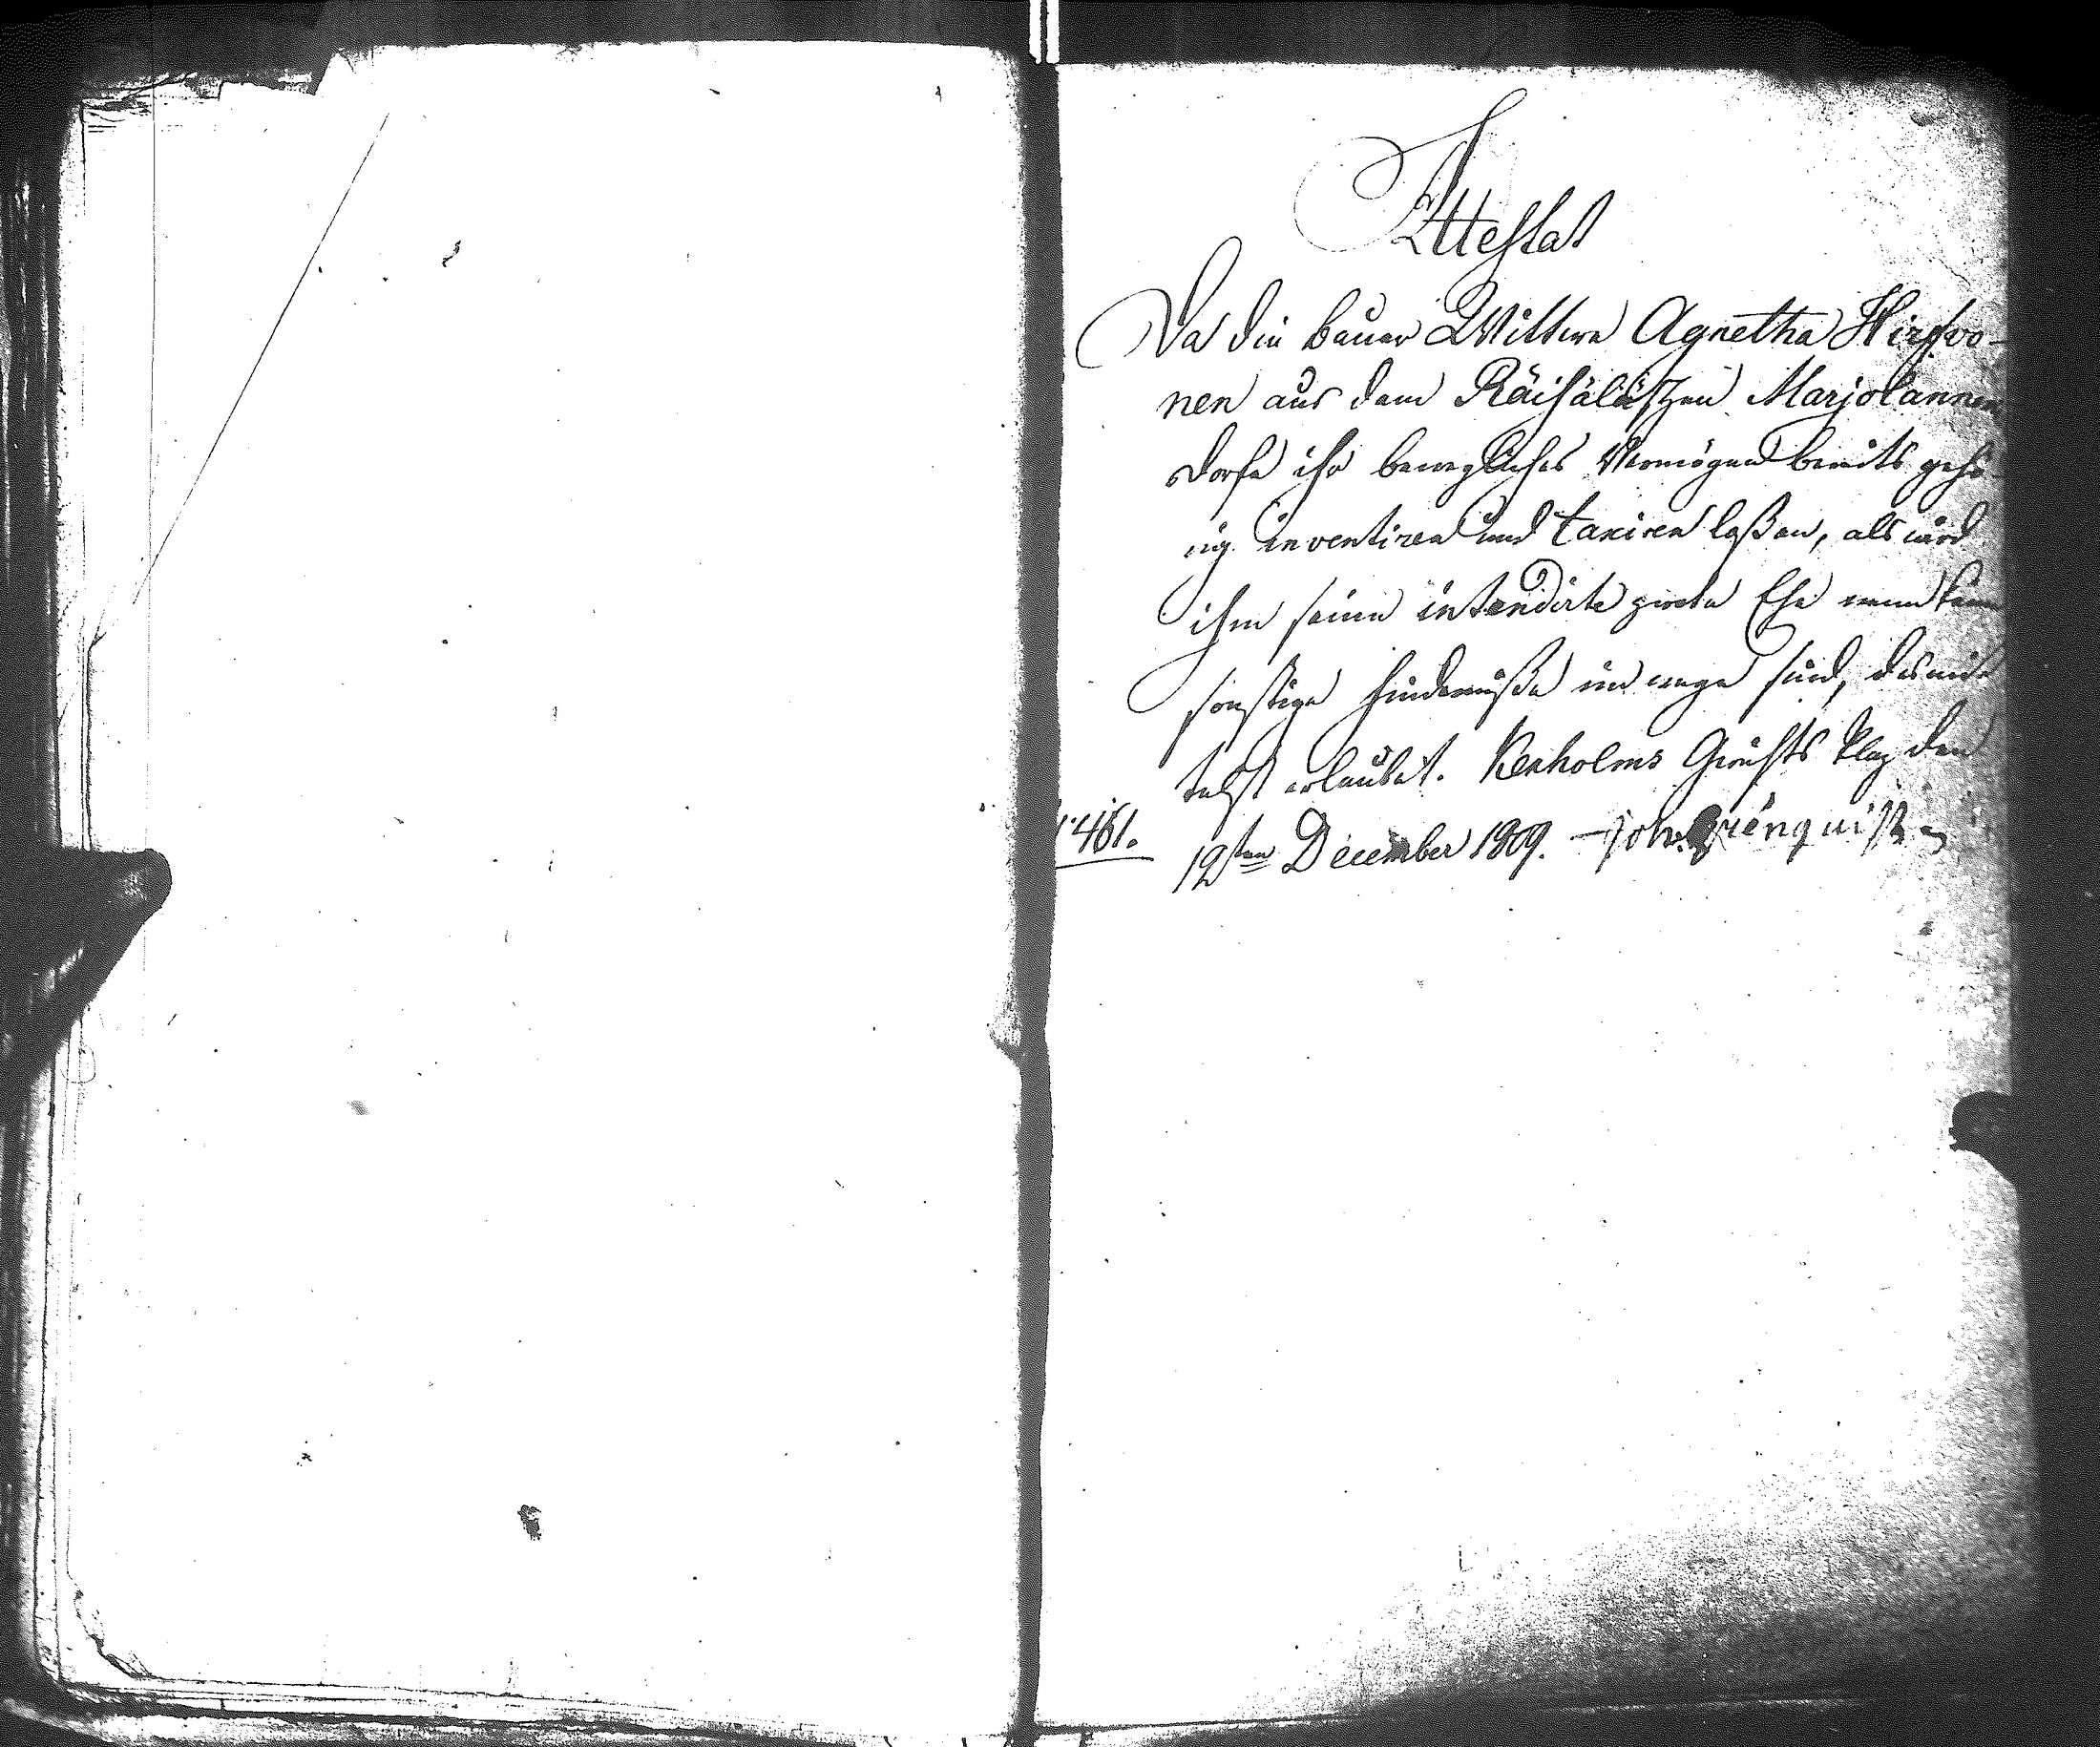 Attestat
Da die Bauer Wittwe Agnetha Hirfvo-
nen aus dem Räisäläschen Marjolannen
Dorfe ihr bewegliches Vermögen bereits gehö-
rig inventiren und taxiren laßen, als wird
ihm seine intendirte zwote Ehe wenn keine
sonstige Hinderniße im wege sind, desmit-
telst erlaubet. Kexholms Gerichts Plaz den
461. 19ten December 1809. Joh. Grénquist